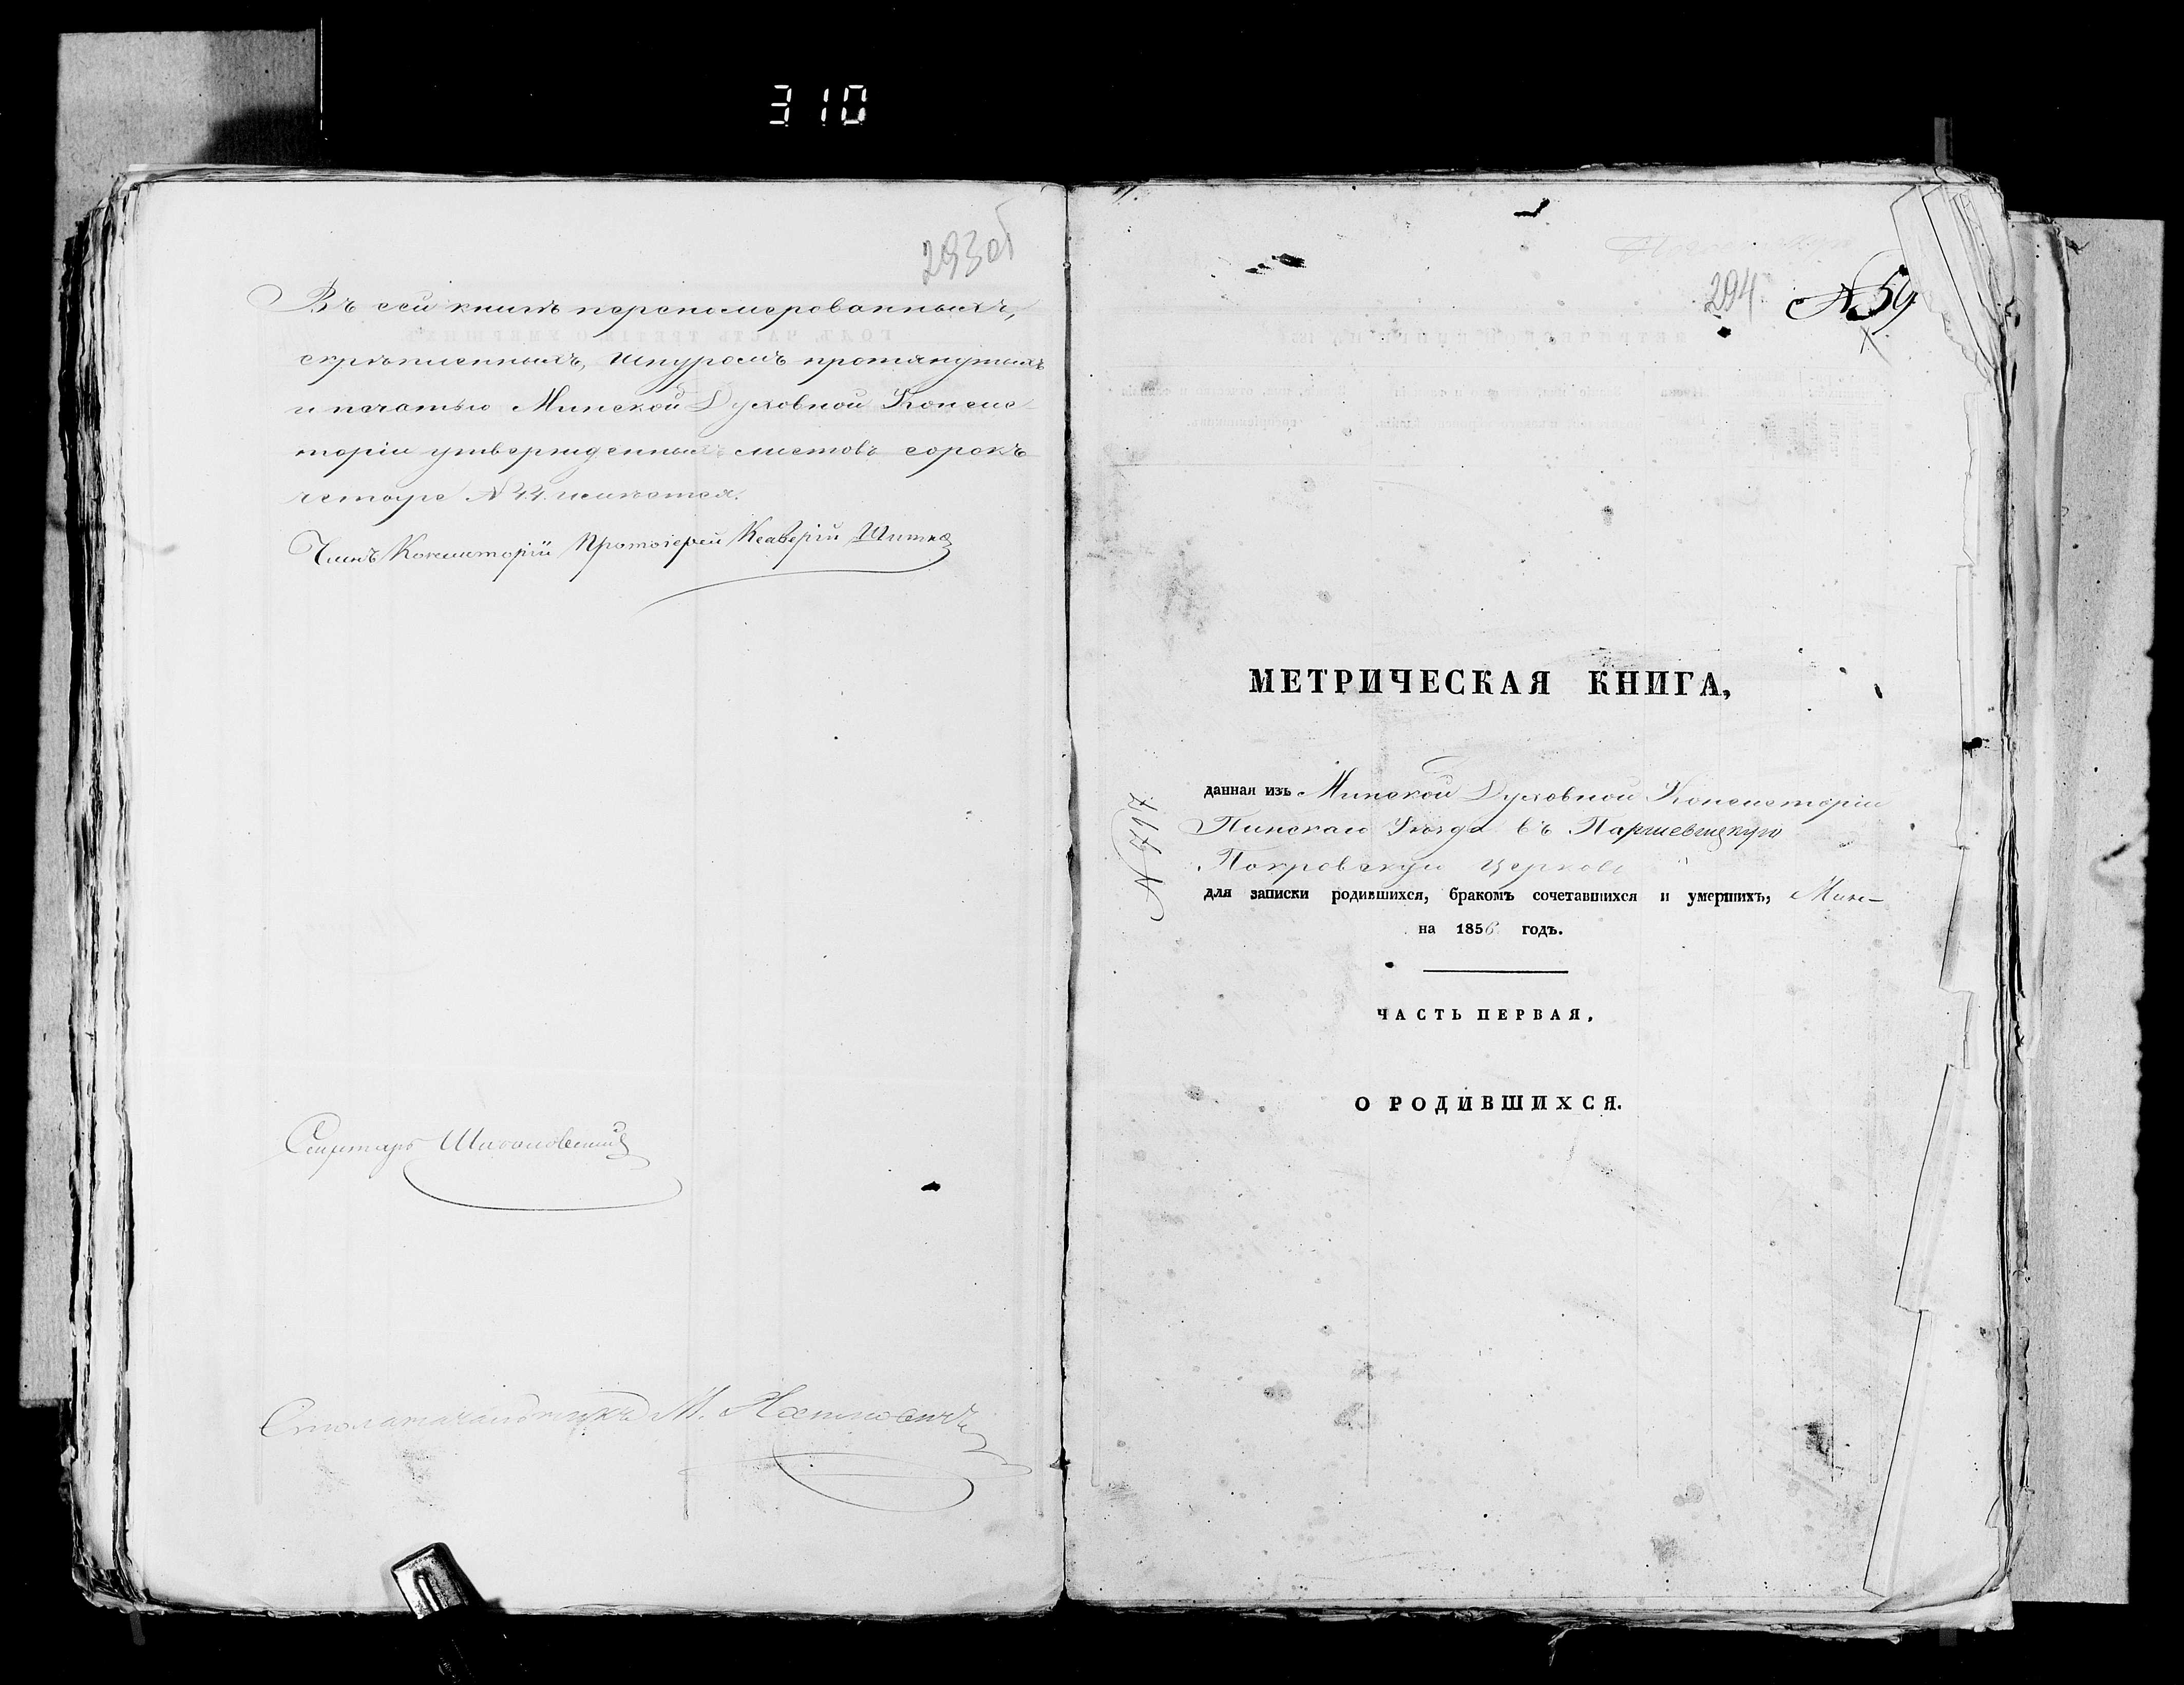 310
293об
Въ сей книгѣ перепомерованныхъ,
скрѣпленныхъ, шнуромъ протянутыхъ
и печатью Минской Духовной Консис-
торіи утвержденныхъ листовъ сорокъ
четыре № 44. имѣется.
Членъ Консисторіи Протоіерей Ксаверій
Секретарь
Столоначальникъ М.
294
№ 59
МЕТРИЧЕСКАЯ КНИГА,
данная изъ Минской Духовной Консисторіи
Пинскаго Уѣзда въ Паршевицкую
Покровскую церковь
для записки родившихся, бракомъ сочетавшихся и умершихъ,
на 1856 годъ.
ЧАСТЬ ПЕРВАЯ,
О РОДИВШИХСЯ.